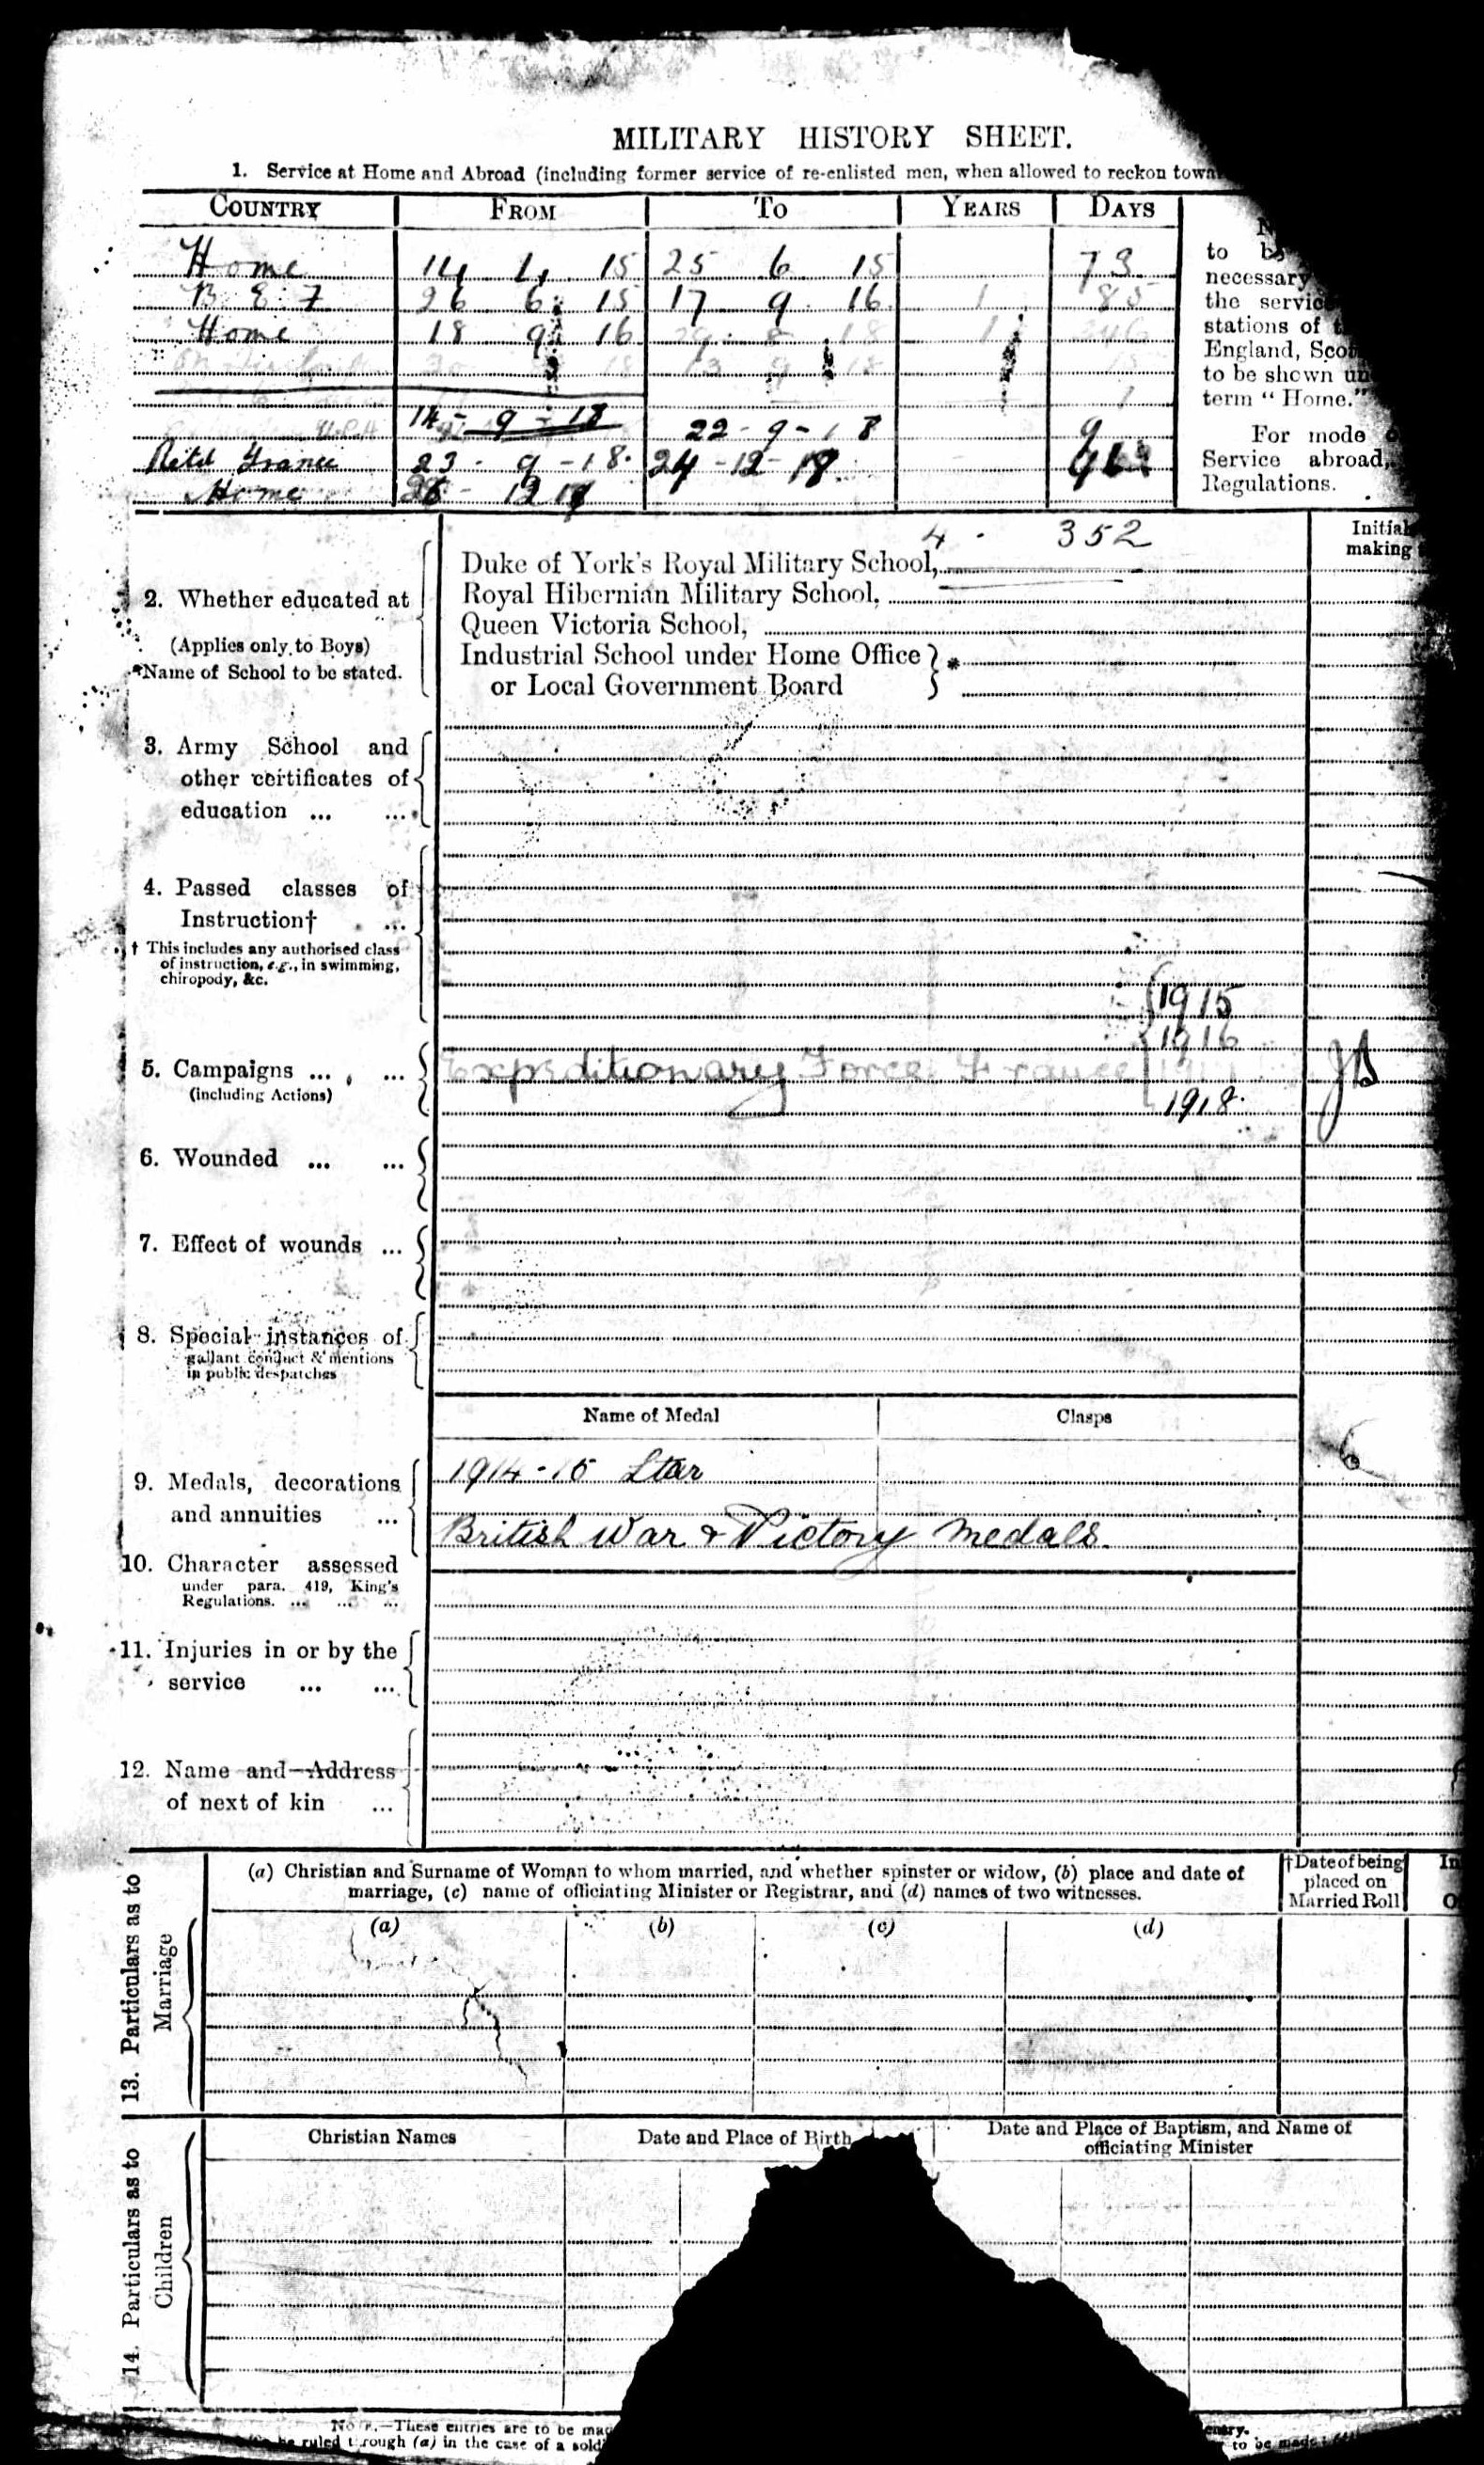 MILITARY HISTORY SHEET.
1. Service at Home and Abroad (including former service of re-enlisted men, when allowed to reckon towa
COUNTRY FROM TO YEARS DAYS
Home 14 4 15 25 6 15 73
B E F 26 6 15 17 9 16 1 85
Home 18 9 16 29 8 18 1 346
18 13 9 18
14 - 9 - 18 22 - 9 - 18 9
Retd France 23 - 9 - 18. 24 - 12 - 18
Home 12
4 . 352
to be
necessary
the servic
stations of t
England, Scot
to be shown un
term "Home."
For mode o
Service abroad,
Regulations.
Initial
making
2. Whether educated at
(Applies only to Boys)
*Name of School to be stated.
Duke of York's Royal Military School,
Royal Hibernian Military School,
Queen Victoria School,
Industrial School under Home Office } *
or Local Government Board
3. Army School and
other certificates of
education ... ...
4. Passed classes of
Instruction† ...
† This includes any authorised class
of instruction, e.g., in swimming,
chiropody, &c.
5. Campaigns ... ...
(including Actions)
1915
1916
Expeditionary Force France 1917
1918.
JB
6. Wounded ... ...
7. Effect of wounds ...
8. Special instances of
gallant conduct & mentions
in public despatches
Name of Medal Clasps
9. Medals, decorations
and annuities ...
1914-15 Star
British War & Victory Medals.
10. Character assessed
under para. 419, King's
Regulations. ... ... ...
11. Injuries in or by the
service ... ...
12. Name and Address
of next of kin ...
13. Particulars as to
Marriage
(a) Christian and Surname of Woman to whom married, and whether spinster or widow, (b) place and date of
marriage, (c) name of officiating Minister or Registrar, and (d) names of two witnesses.
†Date of being
placed on
Married Roll
(a) (b) (c) (d)
14. Particulars as to
Children
Christian Names Date and Place of Birth
Date and Place of Baptism, and Name of
officiating Minister
NOTE.—These entries are to be mad
entry.
ruled through (a) in the case of a sold
to be made